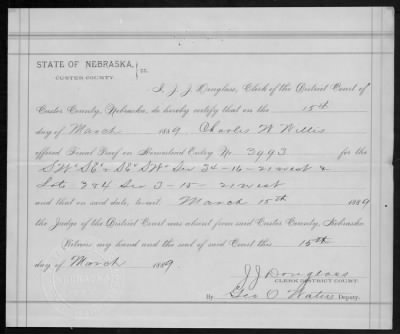 STATE OF NEBRASKA, } ss.
CUSTER COUNTY.
I, J. J. Douglass, Clerk of the District Court of
Custer County, Nebraska, do hereby certify that on the 15th
day of March 1889, Charles W Willis
offered Final Proof on Homestead Entry No. 3993 for the
SW¼ SE¼ & SE¼ SW¼ Sec 34-16-21 west &
Lots 3 & 4 Sec 3-15-21 west
and that on said date, to-wit: March 15th 1889
the Judge of the District Court was absent from said Custer County, Nebraska
Witness my hand and the seal of said Court this 15th
day of March 1889.
J J Douglass
CLERK DISTRICT COURT.
By Geo O Waters Deputy.